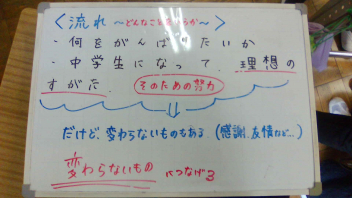 ＜流れ ～どんなことをかくか～＞
・何をがんばりたいか
・中学生になって、理想の
すがた そのための努力
⇓
だけど変わらないものもある(感謝、友情など…)
変わらないもの につなげる